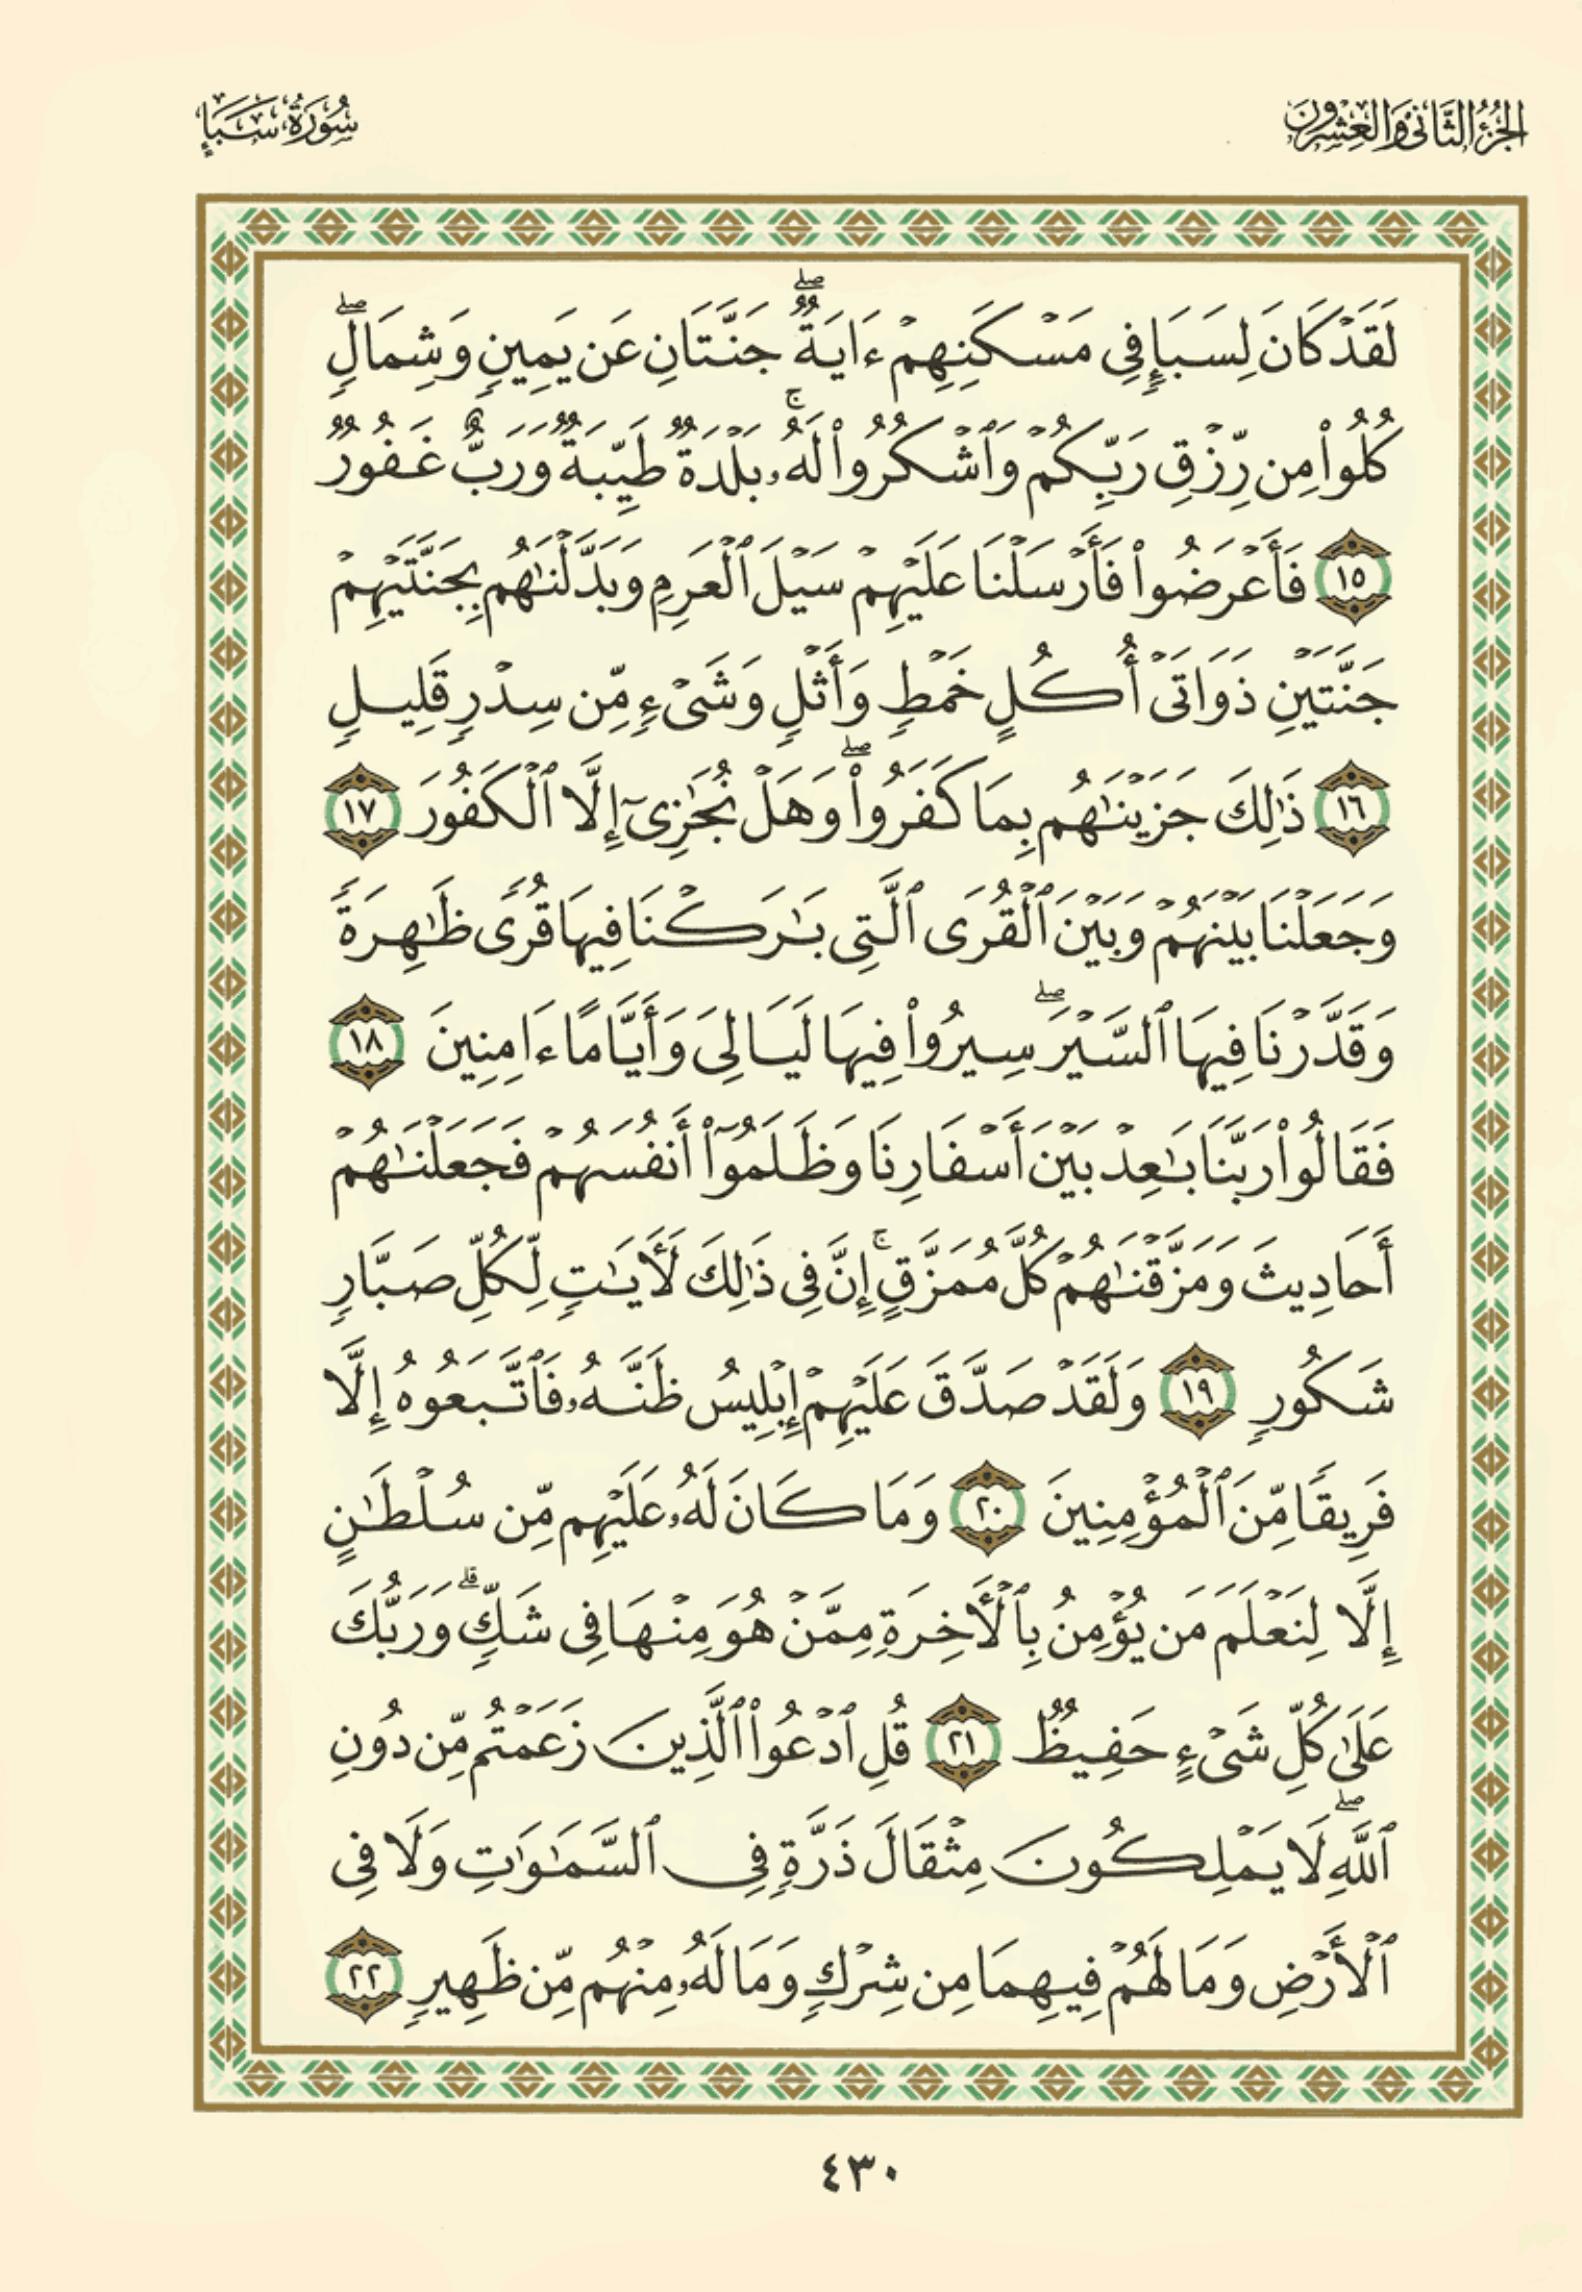 الجزء الثاني والعشرون
سورة سبإ
لَقَدۡ كَانَ لِسَبَإٖ فِي مَسۡكَنِهِمۡ ءَايَةٞۖ جَنَّتَانِ عَن يَمِينٖ وَشِمَالٖۖ
كُلُواْ مِن رِّزۡقِ رَبِّكُمۡ وَٱشۡكُرُواْ لَهُۥۚ بَلۡدَةٞ طَيِّبَةٞ وَرَبٌّ غَفُورٞ
١٥ فَأَعۡرَضُواْ فَأَرۡسَلۡنَا عَلَيۡهِمۡ سَيۡلَ ٱلۡعَرِمِ وَبَدَّلۡنَٰهُم بِجَنَّتَيۡهِمۡ
جَنَّتَيۡنِ ذَوَاتَيۡ أُكُلٍ خَمۡطٖ وَأَثۡلٖ وَشَيۡءٖ مِّن سِدۡرٖ قَلِيلٖ
١٦ ذَٰلِكَ جَزَيۡنَٰهُم بِمَا كَفَرُواْۖ وَهَلۡ نُجَٰزِيٓ إِلَّا ٱلۡكَفُورَ ١٧
وَجَعَلۡنَا بَيۡنَهُمۡ وَبَيۡنَ ٱلۡقُرَى ٱلَّتِي بَٰرَكۡنَا فِيهَا قُرٗى ظَٰهِرَةٗ
وَقَدَّرۡنَا فِيهَا ٱلسَّيۡرَۖ سِيرُواْ فِيهَا لَيَالِيَ وَأَيَّامًا ءَامِنِينَ ١٨
فَقَالُواْ رَبَّنَا بَٰعِدۡ بَيۡنَ أَسۡفَارِنَا وَظَلَمُوٓاْ أَنفُسَهُمۡ فَجَعَلۡنَٰهُمۡ
أَحَادِيثَ وَمَزَّقۡنَٰهُمۡ كُلَّ مُمَزَّقٍۚ إِنَّ فِي ذَٰلِكَ لَأٓيَٰتٖ لِّكُلِّ صَبَّارٖ
شَكُورٖ ١٩ وَلَقَدۡ صَدَّقَ عَلَيۡهِمۡ إِبۡلِيسُ ظَنَّهُۥ فَٱتَّبَعُوهُ إِلَّا
فَرِيقٗا مِّنَ ٱلۡمُؤۡمِنِينَ ٢٠ وَمَا كَانَ لَهُۥ عَلَيۡهِم مِّن سُلۡطَٰنٍ
إِلَّا لِنَعۡلَمَ مَن يُؤۡمِنُ بِٱلۡأٓخِرَةِ مِمَّنۡ هُوَ مِنۡهَا فِي شَكّٖۗ وَرَبُّكَ
عَلَىٰ كُلِّ شَيۡءٍ حَفِيظٞ ٢١ قُلِ ٱدۡعُواْ ٱلَّذِينَ زَعَمۡتُم مِّن دُونِ
ٱللَّهِۖ لَا يَمۡلِكُونَ مِثۡقَالَ ذَرَّةٖ فِي ٱلسَّمَٰوَٰتِ وَلَا فِي
ٱلۡأَرۡضِ وَمَا لَهُمۡ فِيهِمَا مِن شِرۡكٖ وَمَا لَهُۥ مِنۡهُم مِّن ظَهِيرٖ ٢٢
٤٣٠